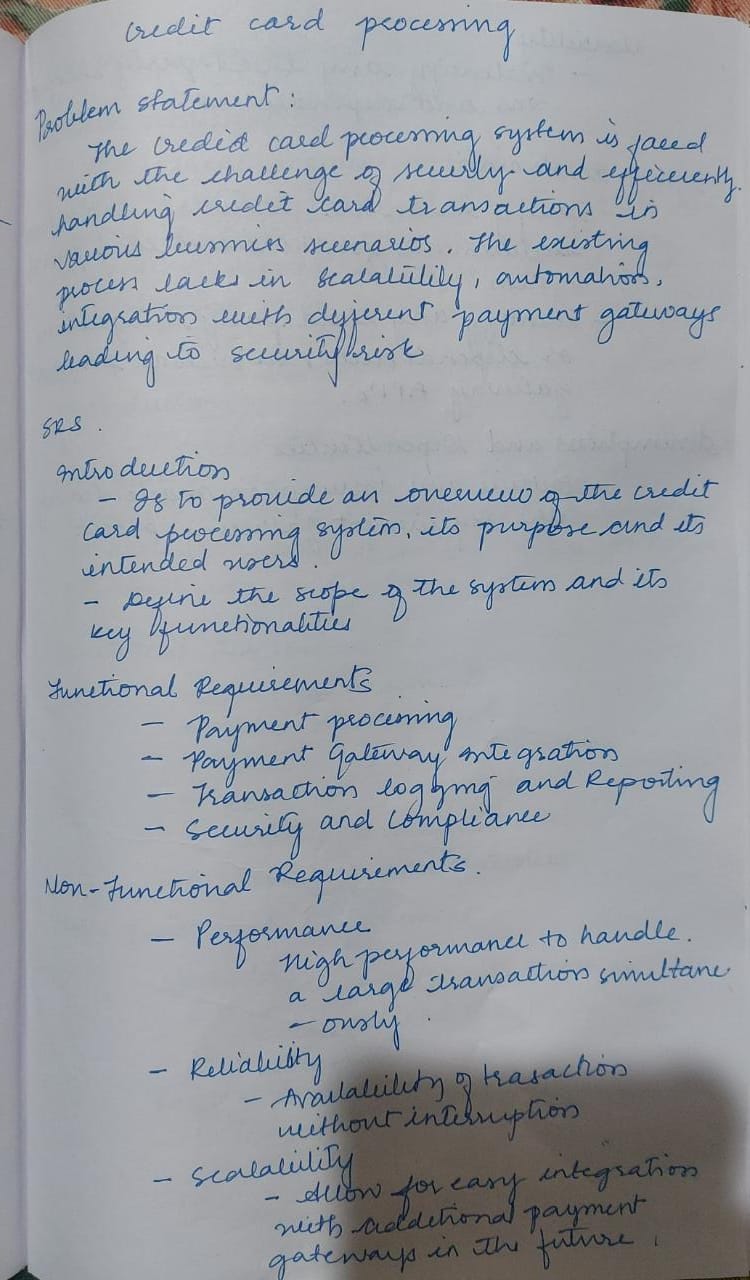 Credit card processing
Problem statement :
The credit card processing system is faced
with the challenge of securly and efficiently
handling credit card transactions in
various business scenarios. The existing
process lacks in scalability, automation,
integration with different payment gateways
leading to security risk
SRS.
Introduction
- Is to provide an overview of the credit
card processing system, its purpose and its
intended users.
- Define the scope of the system and its
key functionalities
Functional Requirements
- Payment processing
- Payment Gateway integration
- Transaction logging and Reporting
- Security and Compliance
Non-Functional Requirements.
- Performance
High performance to handle.
a large transactions simultane
- ously.
- Reliability
- Availability of trasaction
without interruption
- Scalability
- Allow for easy integration
with additional payment
gateways in the future.